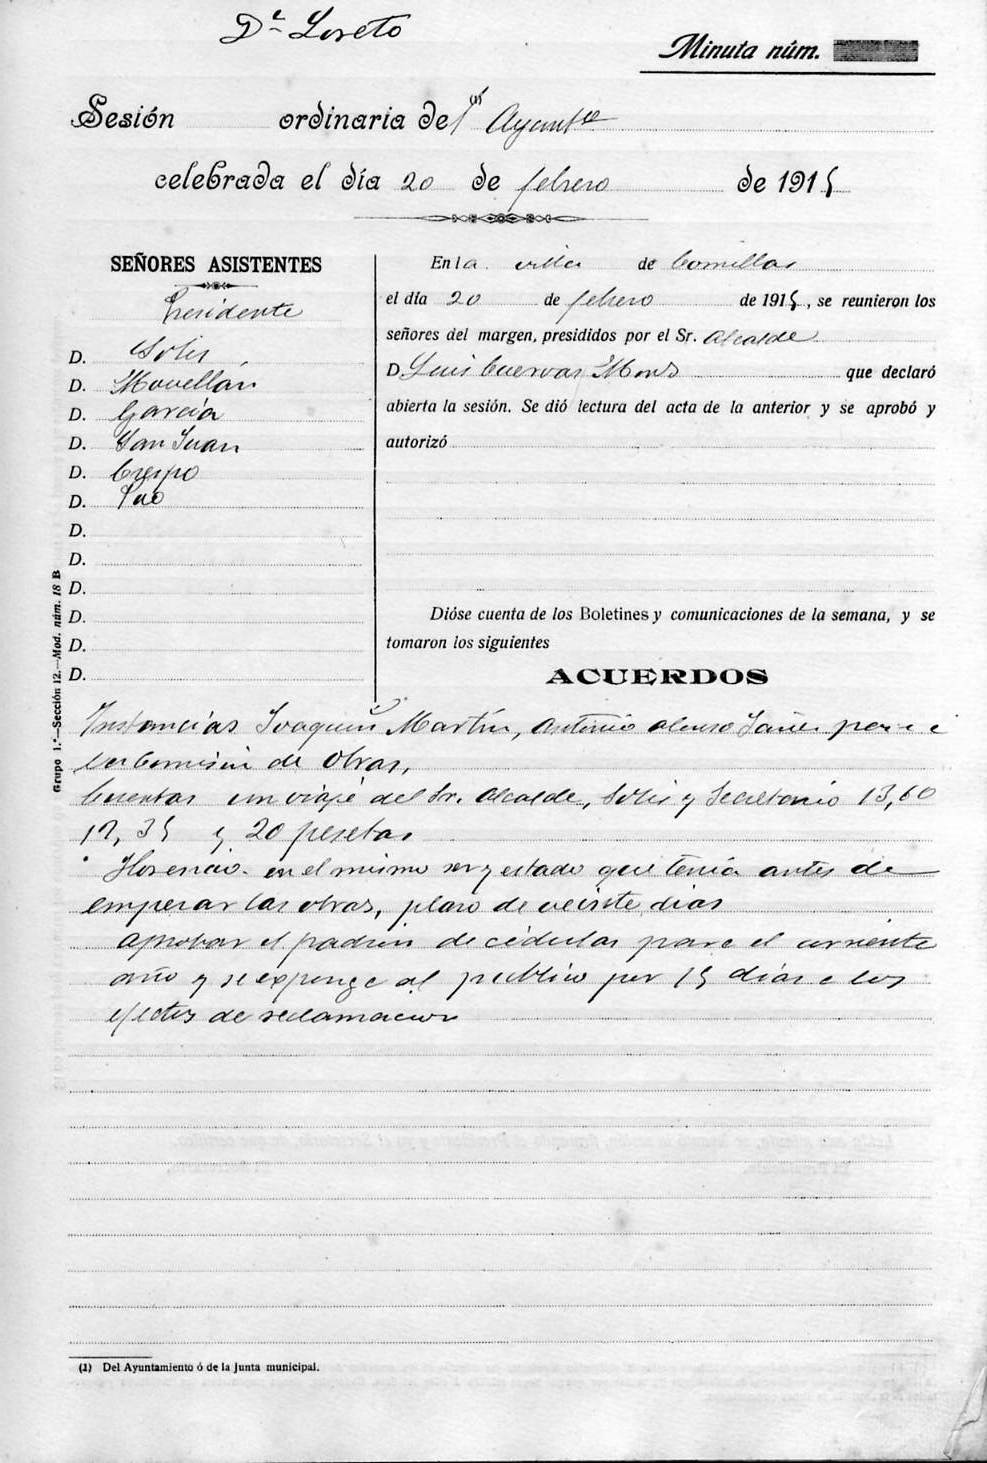 Dª Loreto
Minuta núm.
Sesión ordinaria del (1) Ayuntto
celebrada el día 20 de febrero de 1915
SEÑORES ASISTENTES
Presidente
D. Solis
D. Movellán
D. García
D. San Juan
D. Crespo
D.
D.
D.
D.
D.
D.
D.
En la villa de Comillas
el día 20 de febrero de 1915, se reunieron los
señores del margen, presididos por el Sr. Alcalde
D. Luis Cuevas Mons que declaró
abierta la sesión. Se dió lectura del acta de la anterior y se aprobó y
autorizó
Dióse cuenta de los Boletines y comunicaciones de la semana, y se
tomaron los siguientes
ACUERDOS
Instancias Joaquín Martín, Antonio Alonso pase a
la Comisión de Obras,
Cuentas un viaje del Sr. Alcalde, Solis y Secretario 13,60
12,35 y 20 pesetas
Florencio en el mismo ser y estado que tenía antes de
empezar las obras, plazo de veinte dias
Aprobar el padrón de cédulas para el corriente
año y se exponga al publico por 15 días a los
efectos de reclamacion
Grupo 1.º—Sección 12.—Mod. núm. 18 B
(1) Del Ayuntamiento ó de la Junta municipal.